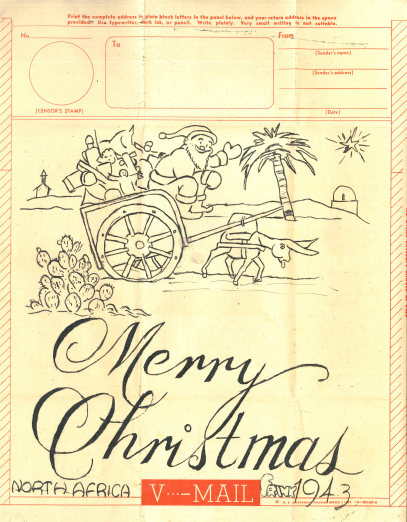 Print the complete address in plain block letters in the panel below, and your return address in the space
provided. Use typewriter, dark ink, or pencil. Write plainly. Very small writing is not suitable.
No.
To
From
(Sender's name)
(Sender's address)
(CENSOR'S STAMP)
(Date)
Merry
Christmas
NORTH AFRICA V···–MAIL 1943